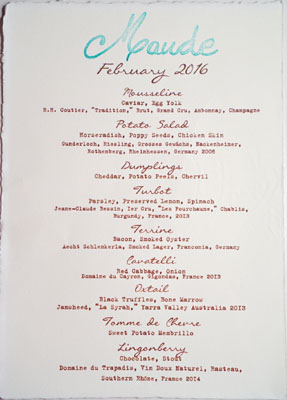 Maude
February 2016
Mousseline
Caviar, Egg Yolk
R.H. Coutier, "Tradition," Brut, Grand Cru, Ambonnay, Champagne
Potato Salad
Horseradish, Poppy Seeds, Chicken Skin
Gunderloch, Riesling, Grosses Gewächs, Nackenheimer,
Rothenberg, Rheinhessen, Germany 2008
Dumplings
Cheddar, Potato Peels, Chervil
Turbot
Parsley, Preserved Lemon, Spinach
Jeane-Claude Bessin, 1er Cru, "Les Fourchaume," Chablis,
Burgundy, France, 2013
Terrine
Bacon, Smoked Oyster
Aecht Schlenkerla, Smoked Lager, Franconia, Germany
Cavatelli
Red Cabbage, Onion
Domaine du Cayron, Gigondas, France 2013
Oxtail
Black Truffles, Bone Marrow
Jamsheed, "La Syrah," Yarra Valley Australia 2013
Tomme de Chevre
Sweet Potato Membrillo
Lingonberry
Chocolate, Stout
Domaine du Trapadis, Vin Doux Naturel, Rasteau,
Southern Rhône, France 2014